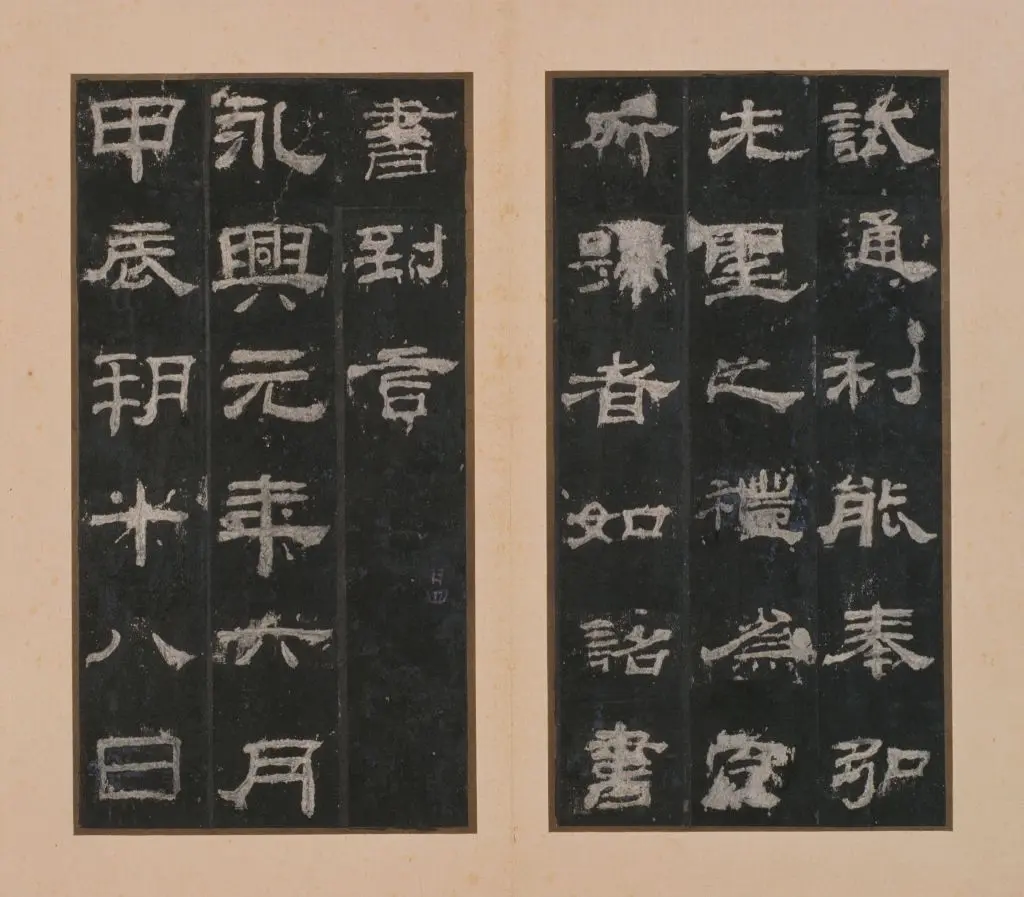 試通利能奉弘
先聖之禮爲宗
所歸者如詔書
書到言
永興元年六月
甲辰朔十八日